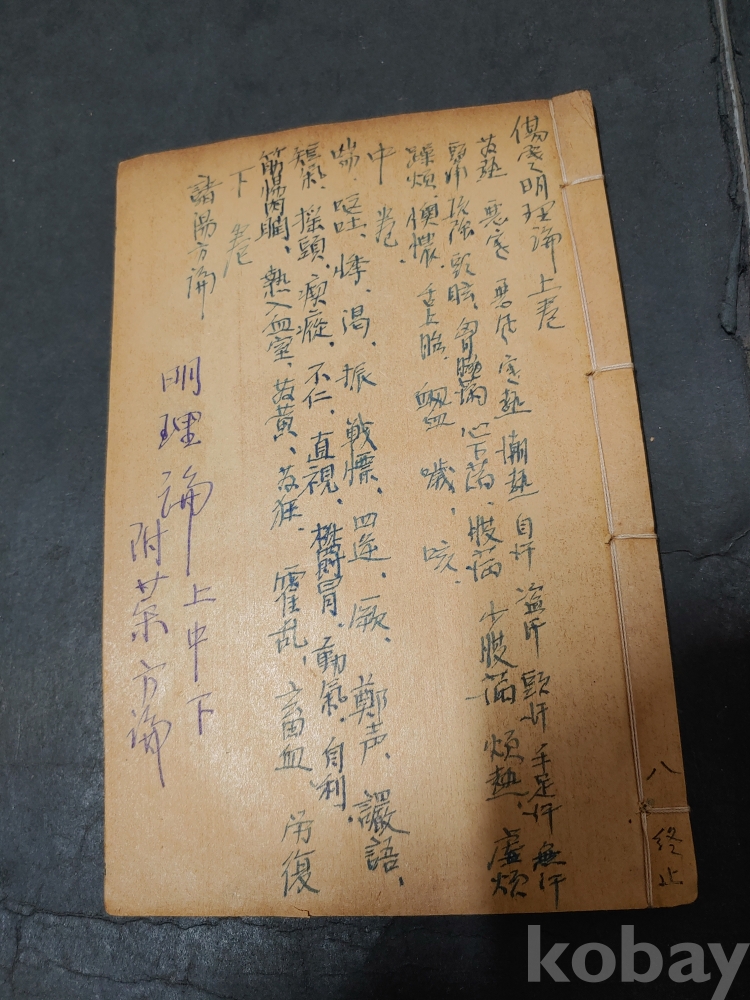 八 終止
傷寒明理論 上卷
发熱 惡寒 惡風 寒熱 潮熱 自汗 盜汗 頭汗 手足汗 無汗
頭痛 項強 頭眩、胸脇滿 心下滿、腹滿 少腹滿 煩熱、虛煩
躁煩、懊憹、舌上胎、衄血 噦、咳、
中卷、
喘、嘔吐、悸、渴、振 戰慄、四逆、厥、鄭声、讝語、
短氣、揺頭、瘈瘲、不仁、直視、鬱冒、動氣、自利、
筋惕肉瞤、熱入血室、发黃、发狂、霍乱、畜血 劳復
下卷
諸湯方論
明理論上中下
附药方論
kobay